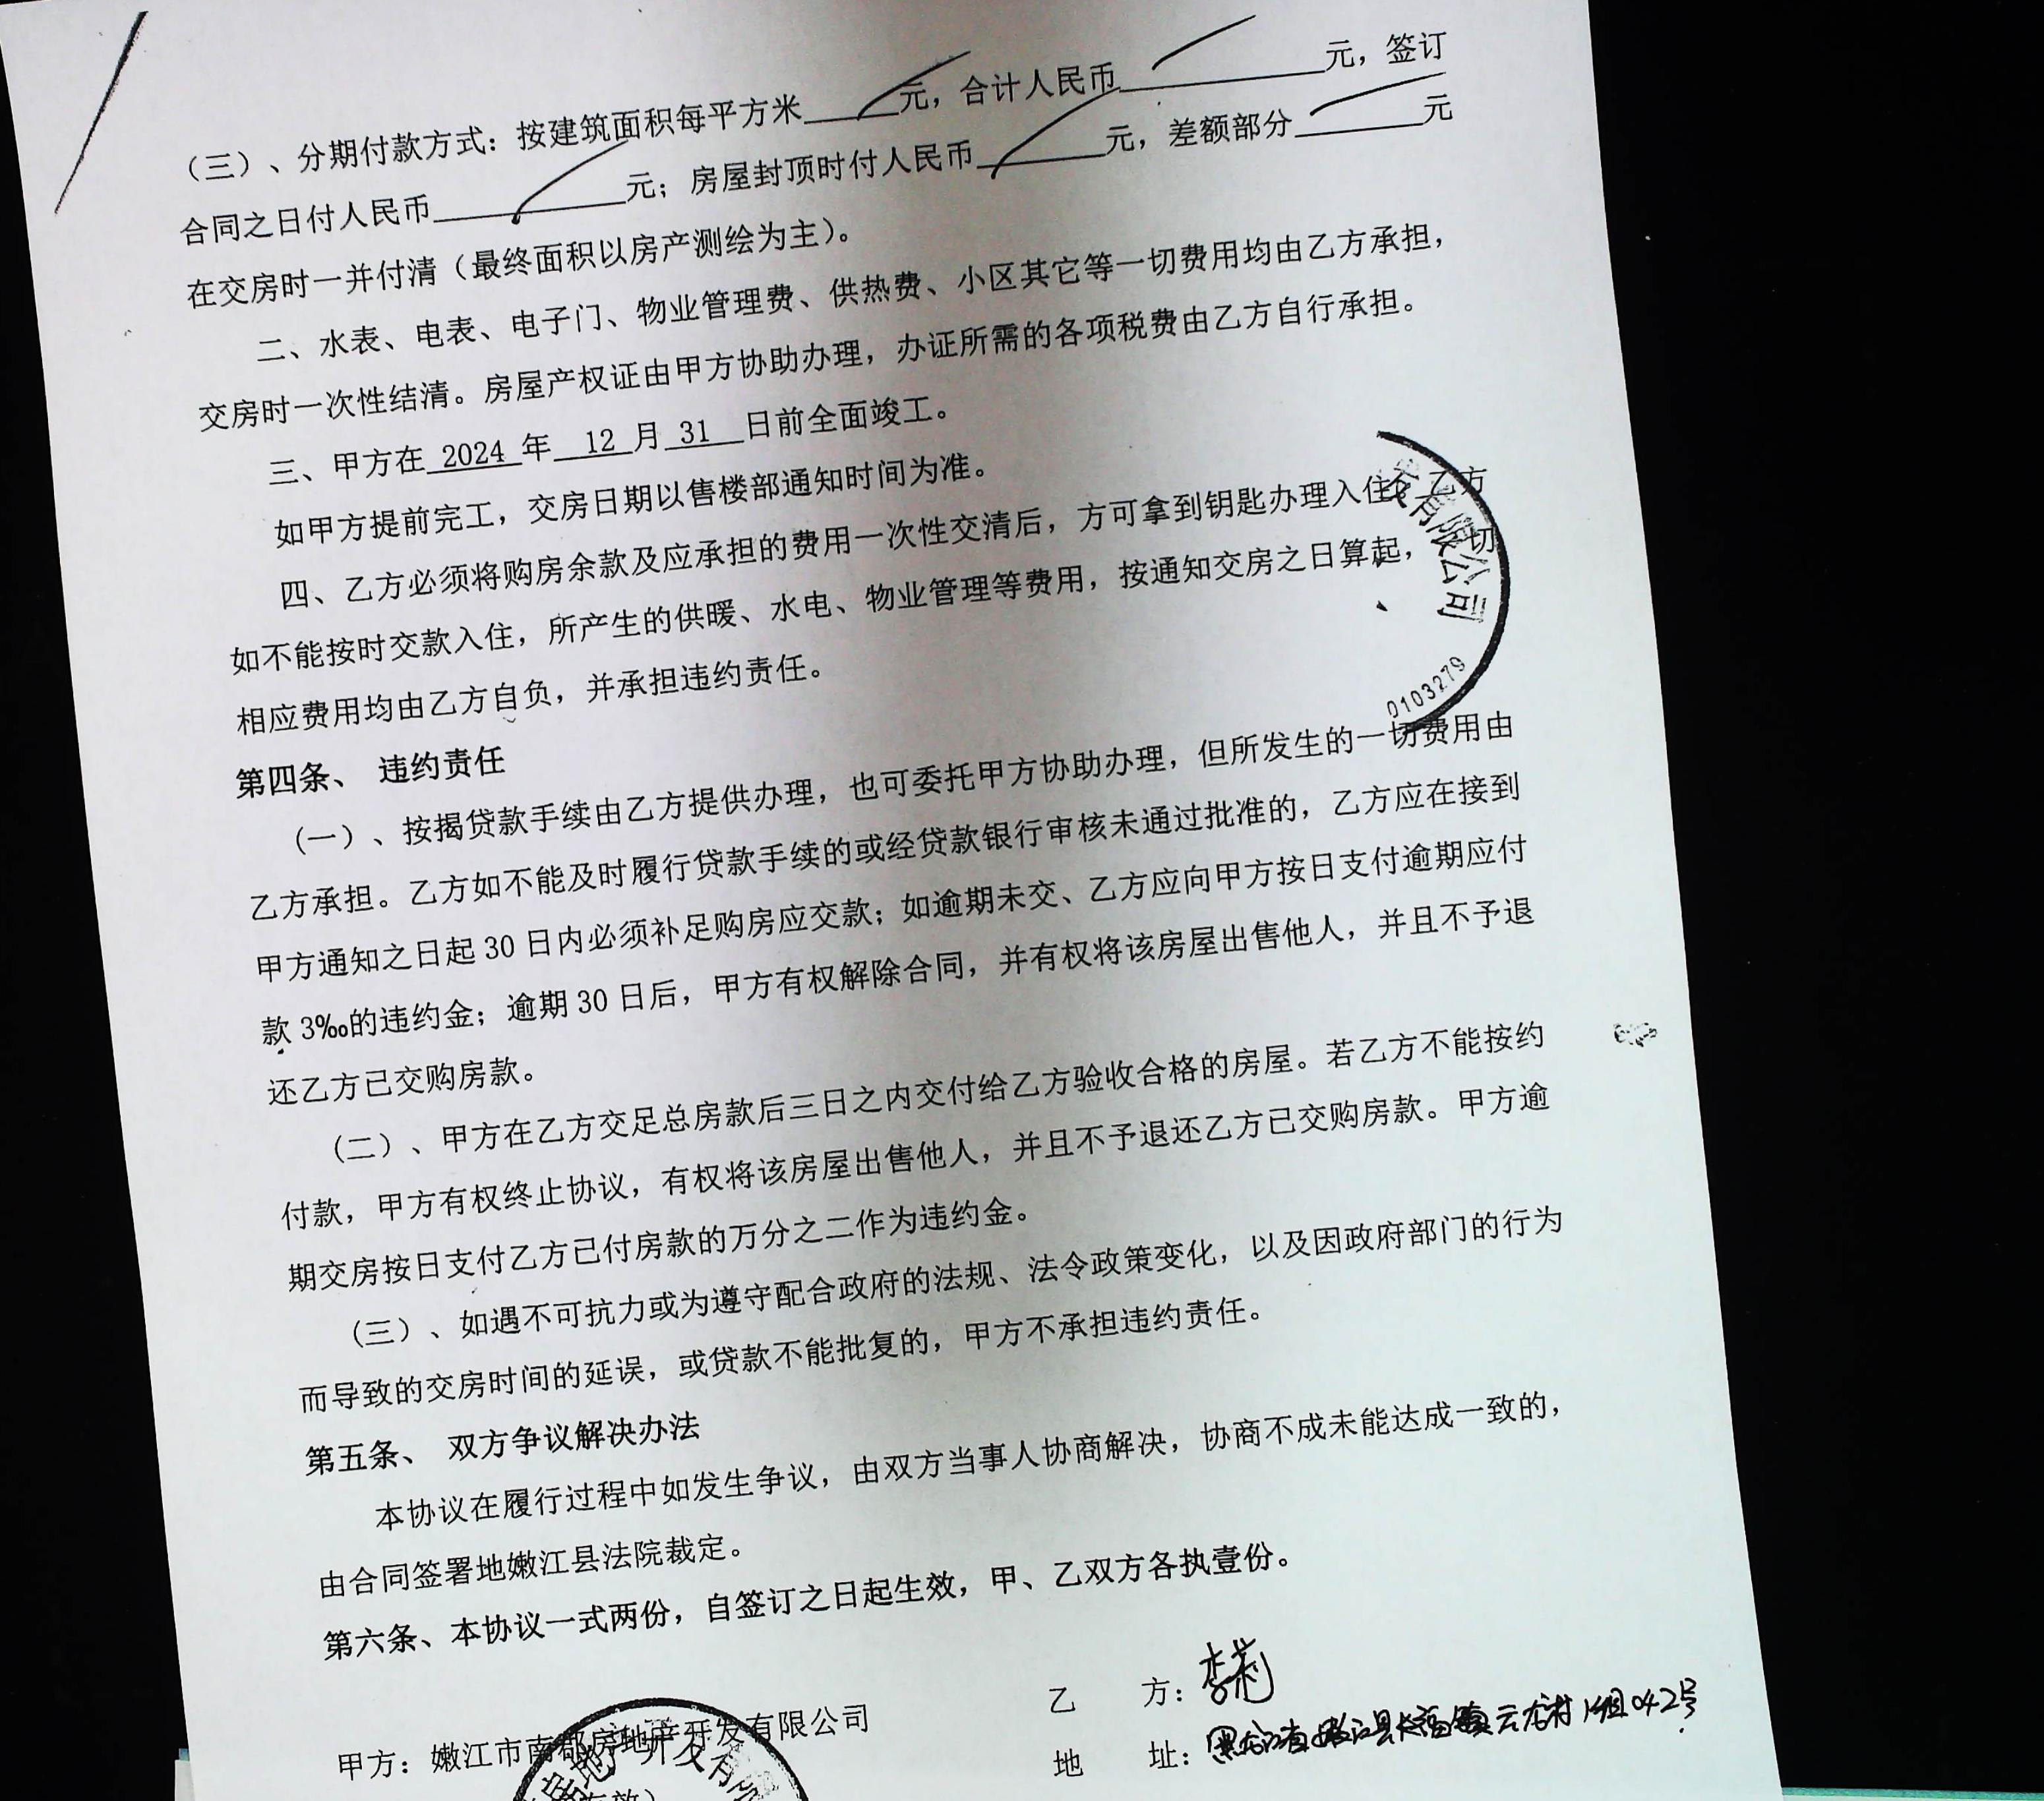 （三）、分期付款方式：按建筑面积每平方米____元，合计人民币____元，签订
合同之日付人民币____元；房屋封顶时付人民币____元，差额部分____元
在交房时一并付清（最终面积以房产测绘为主）。
二、水表、电表、电子门、物业管理费、供热费、小区其它等一切费用均由乙方承担，
交房时一次性结清。房屋产权证由甲方协助办理，办证所需的各项税费由乙方自行承担。
三、甲方在 2024 年 12 月 31 日前全面竣工。
如甲方提前完工，交房日期以售楼部通知时间为准。
四、乙方必须将购房余款及应承担的费用一次性交清后，方可拿到钥匙办理入住。乙方
如不能按时交款入住，所产生的供暖、水电、物业管理等费用，按通知交房之日算起，切
相应费用均由乙方自负，并承担违约责任。
发有限公司
0103279
第四条、 违约责任
（一）、按揭贷款手续由乙方提供办理，也可委托甲方协助办理，但所发生的一切费用由
乙方承担。乙方如不能及时履行贷款手续的或经贷款银行审核未通过批准的，乙方应在接到
甲方通知之日起 30 日内必须补足购房应交款；如逾期未交、乙方应向甲方按日支付逾期应付
款 3‰的违约金；逾期 30 日后，甲方有权解除合同，并有权将该房屋出售他人，并且不予退
还乙方已交购房款。
（二）、甲方在乙方交足总房款后三日之内交付给乙方验收合格的房屋。若乙方不能按约
付款，甲方有权终止协议，有权将该房屋出售他人，并且不予退还乙方已交购房款。甲方逾
期交房按日支付乙方已付房款的万分之二作为违约金。
（三）、如遇不可抗力或为遵守配合政府的法规、法令政策变化，以及因政府部门的行为
而导致的交房时间的延误，或贷款不能批复的，甲方不承担违约责任。
第五条、 双方争议解决办法
本协议在履行过程中如发生争议，由双方当事人协商解决，协商不成未能达成一致的，
由合同签署地嫩江县法院裁定。
第六条、本协议一式两份，自签订之日起生效，甲、乙双方各执壹份。
乙 方：李莉
甲方：嫩江市南郡房地产开发有限公司
地 址：黑龙江省嫩江县长福镇云龙村1组042号
房地产开发有限